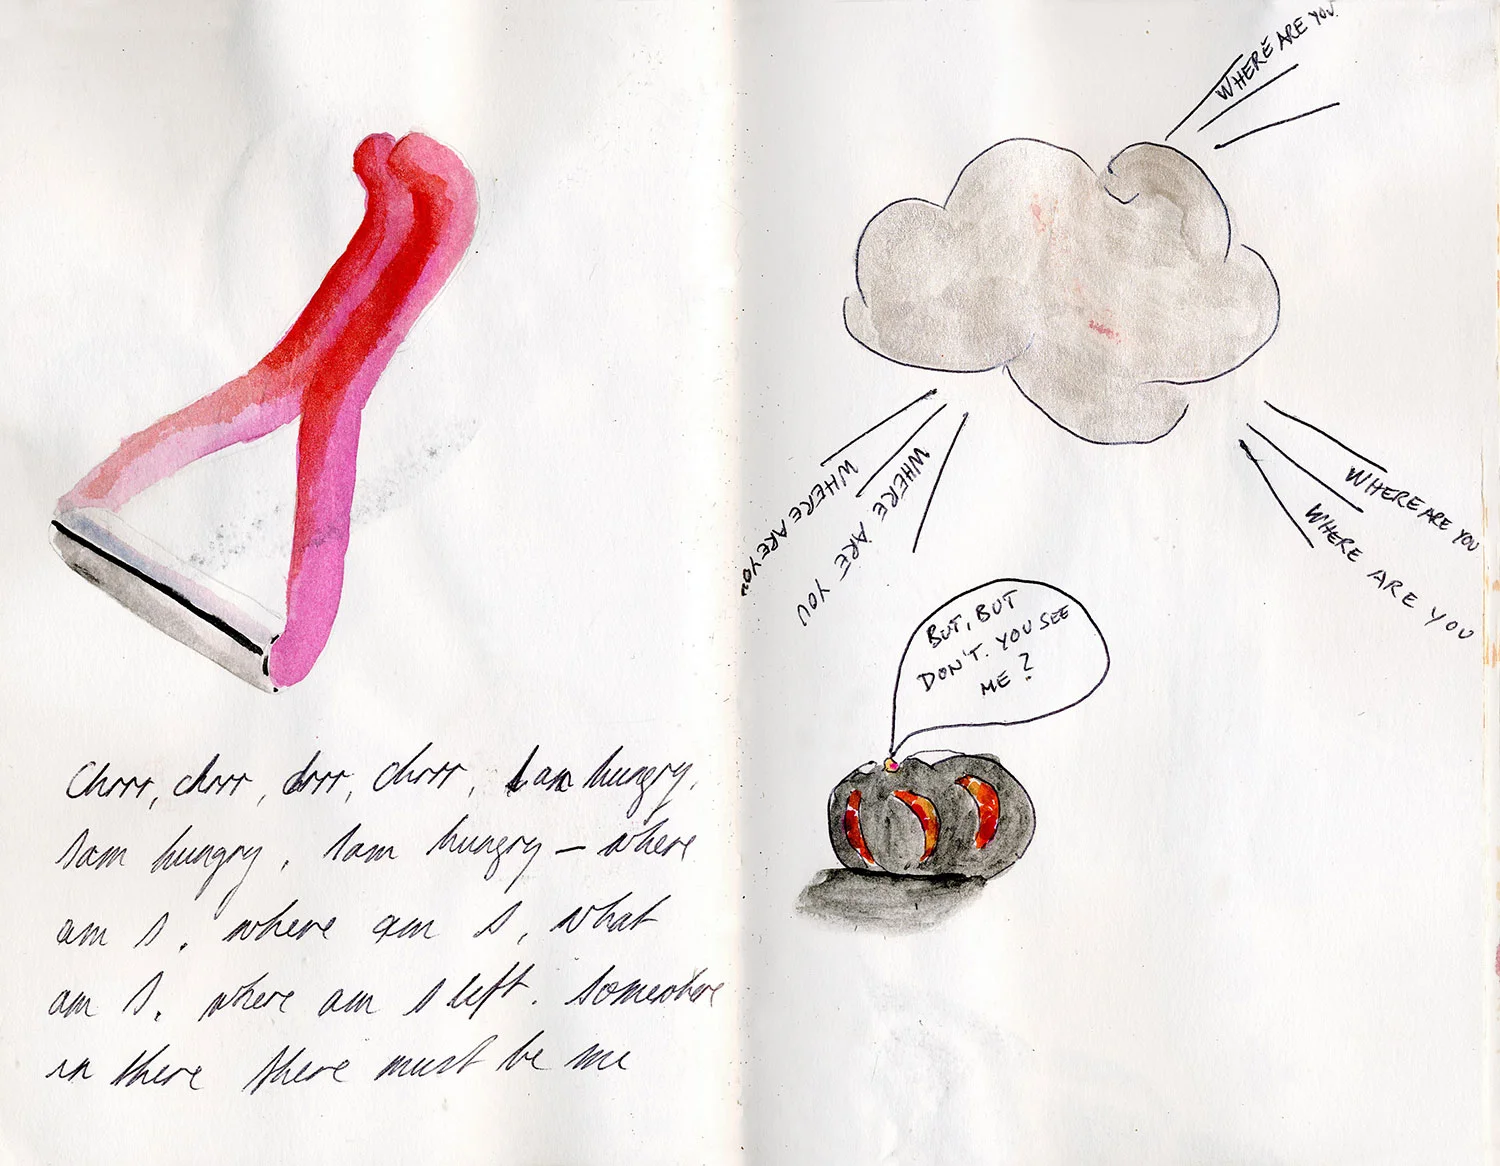 Chrrr, chrrr, drrr, chrrr, I am hungry,
I am hungry, I am hungry – where
am I, where am I, what
am I, where am I left. Somewhere
in there there must be me
WHERE ARE YOU
WHERE ARE YOU
WHERE ARE YOU
WHERE ARE YOU
WHERE ARE YOU
BUT, BUT
DON'T. YOU SEE
ME?